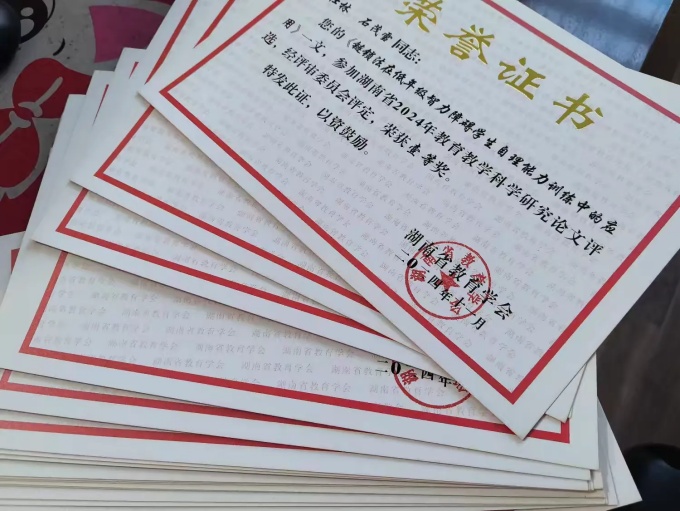 荣誉证书
石茂青同志：
您的《链锁法在低年级智力障碍学生自理能力训练中的应
用》一文，参加湖南省2024年教育教学科学研究论文评
选，经评审委员会评定，荣获壹等奖。
特发此证，以资鼓励。
湖南省教育学会
二〇二四年十二月
湖南省教育学会
二〇二四年